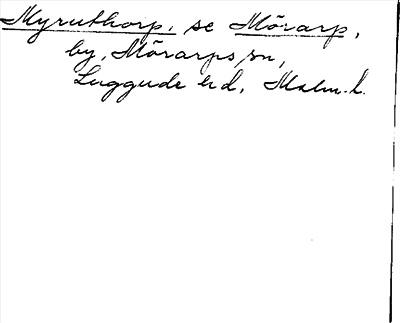 Myruthorp, se Mörarp,
by, Mörarps sn,
Luggude hd, Malm. l.